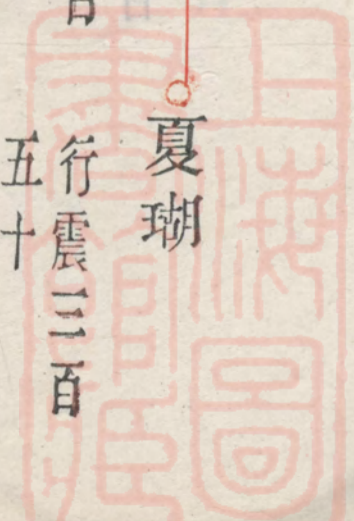 夏瑚
行震三百
五十
上海圖
書館藏